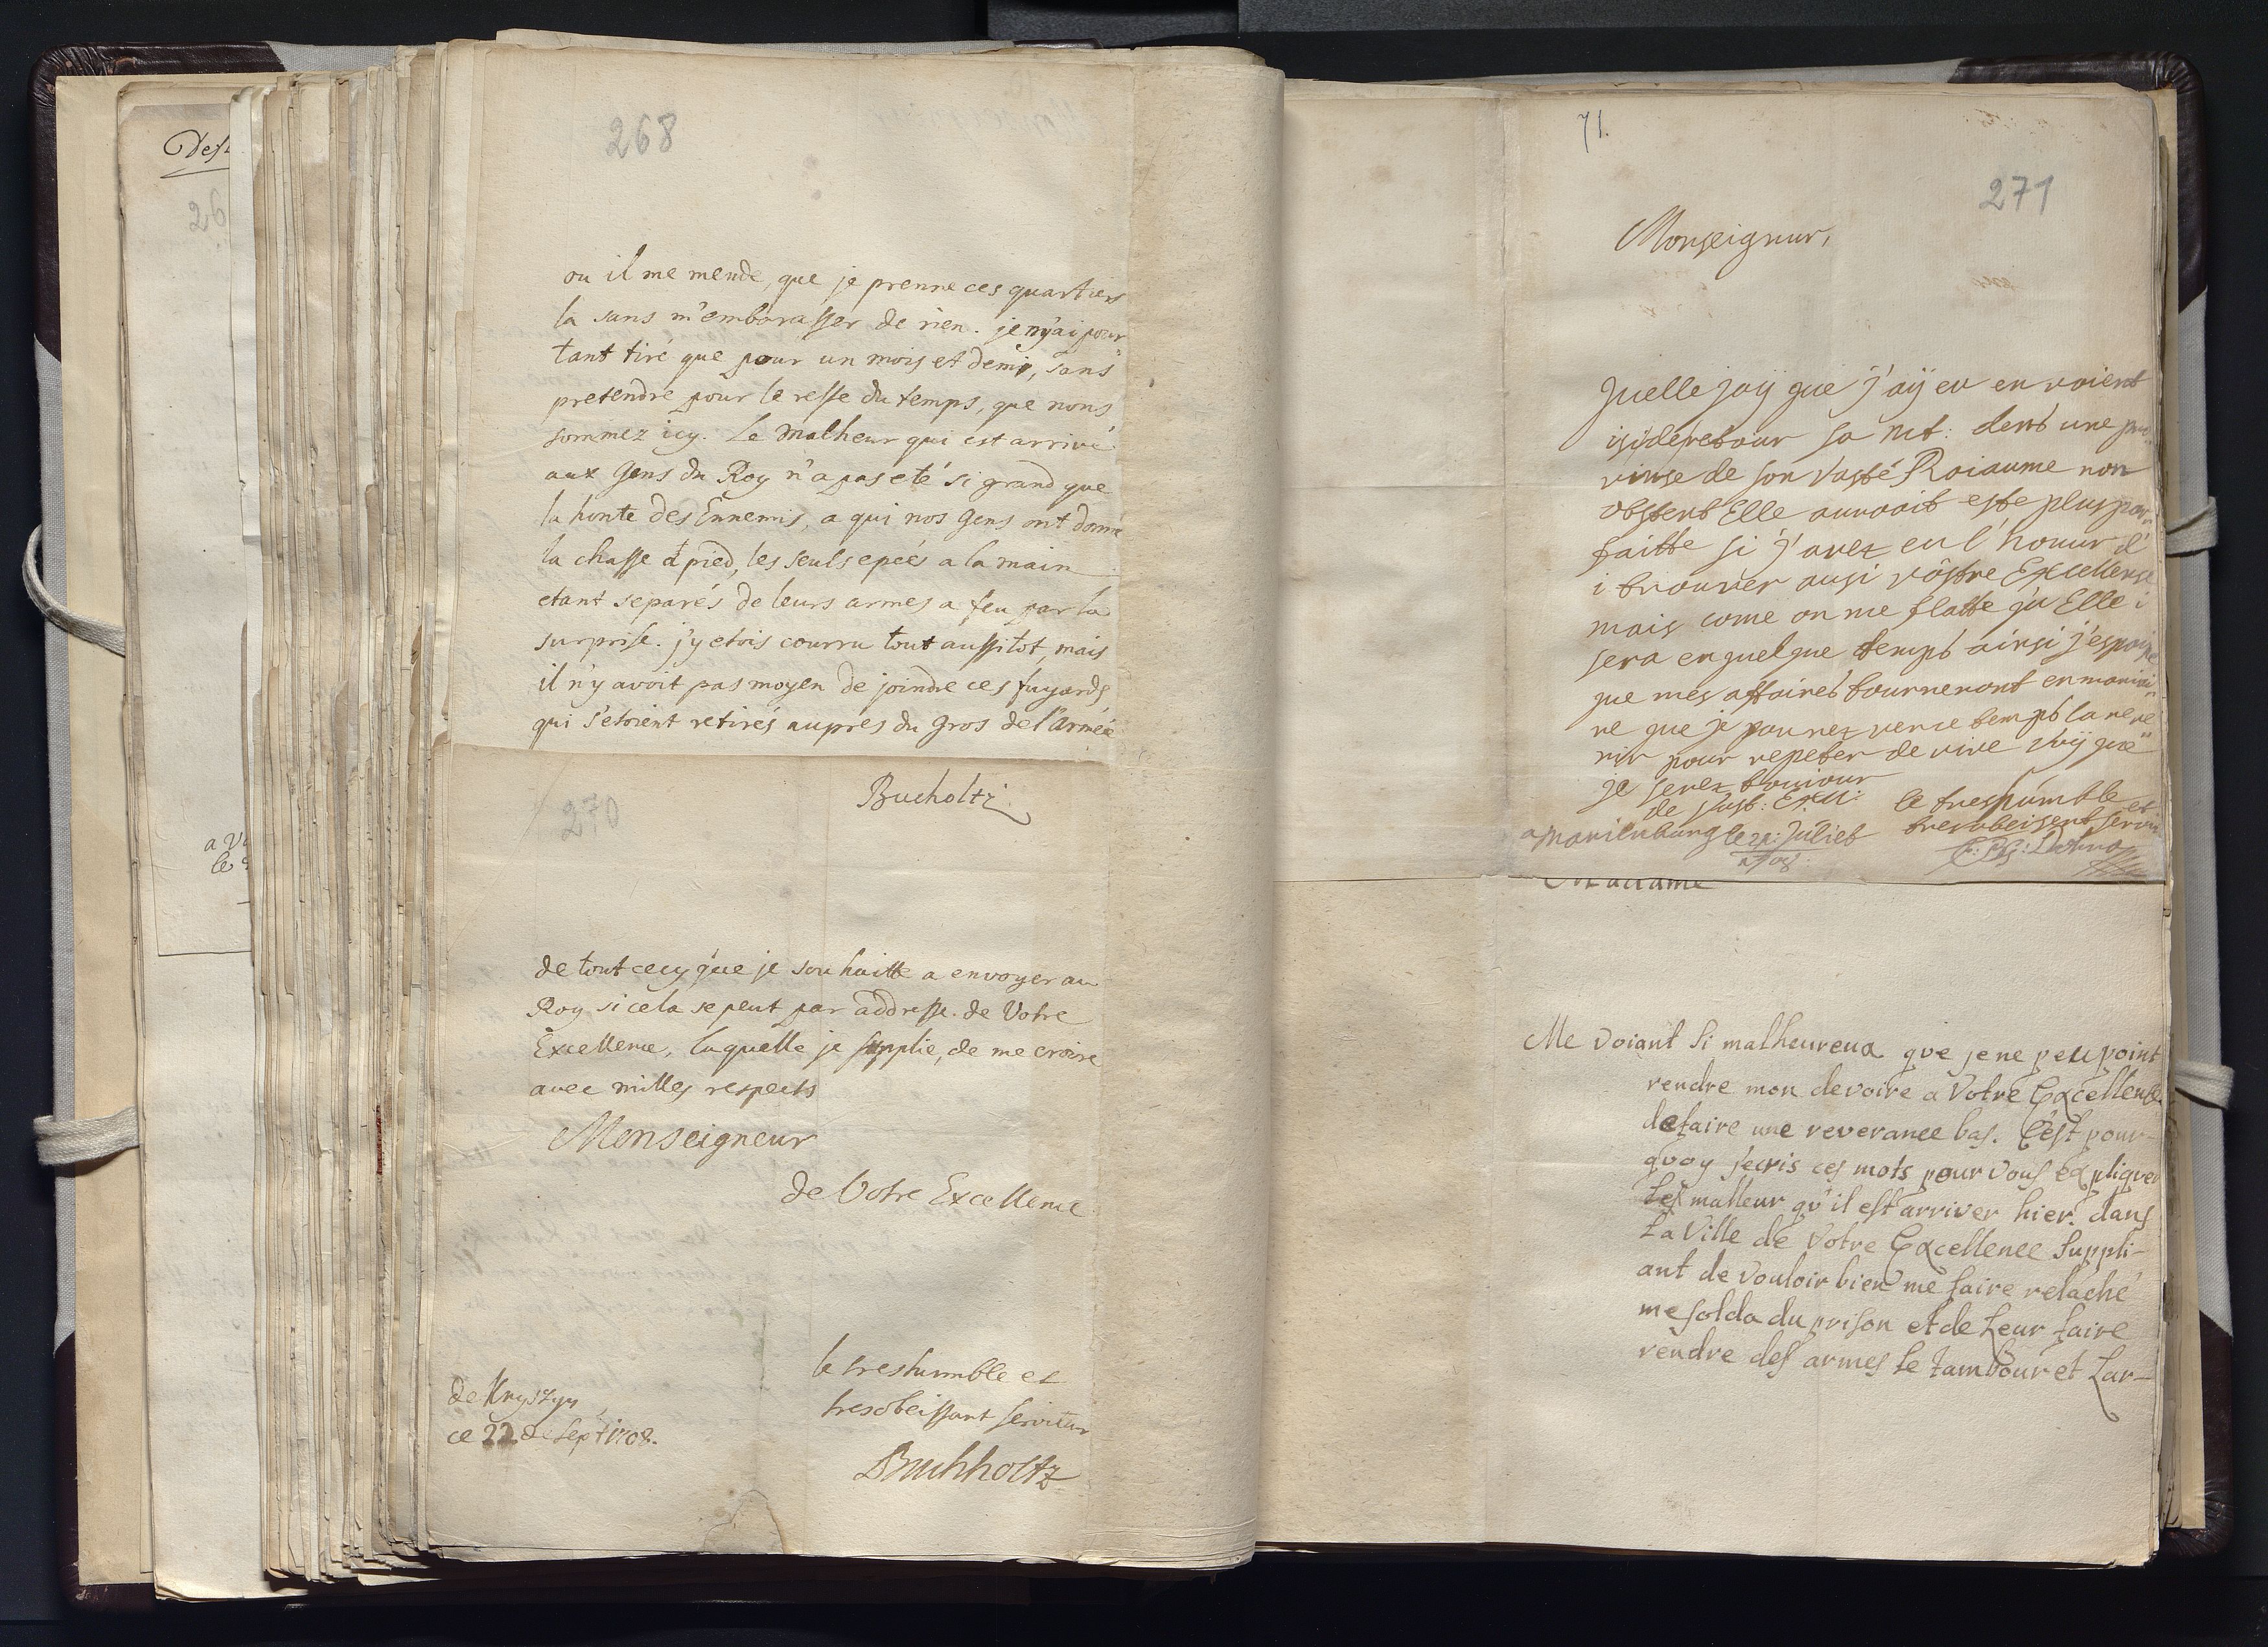 Des
26
a V
le
268
ou il me mende, que je prenne ces quartiers
la sans m'embarasser de rien. je n'y ai pour
tant tiré que pour un mois et demi, sans
pretendre pour le reste du temps, que nous
sommez icy. Le Malheur qui est arrivé
aux Gens du Roy n'a pas eté si grand que
la honte des Ennemis, a qui nos Gens ont donné
la chasse a pied, les seuls epeés a la main
etant separés de leurs armes a feu par la
surprise. j'y etois courru tout aussitot, mais
il n'y avoit pas moyen de joindre ces fuyards
qui s'etoient retirés aupres du Gros de l'Armée
Bucholtz
270
de tout cecy que je souhaitte a envoyer au
Roy si cela se peut par addresse de Votre
Excellence, laquelle je supplie, de me croire
avec milles respects
Monseigneur
de Votre Excellence
le treshumble et
tresobeissant serviteur
Buchholtz
de Knyszyn
ce 22 de Sept 1708.
71.
271
Monseigneur,
Quelle joÿ que j'aÿ eu en voient
isi de retour sa Mt: dens une pro
vinse de son vaste Roiaume non
obstent Elle auroait este plus par
faitte si j'avez eu l'honur d'
i trouver ausi vôstre Excellense
mais come on me flatte qu Elle i
sera en quelque temps ainsi j'espoire
que mes affaires tourneront en manie
re que je pourez vers ce temps la reve
nir pour repeter de vive voÿ que
je serez toujour
de Vost: Exll: le treshumble et
tresobeisent servi
a Marienburg le 21: Juliet
C: Ph: Dohna
Madame
Me voiant si malheureux que je ne peu point
rendre mon devoire a Votre Excellence
de faire une reverance bas. C'est pour-
quoy j'ecris ces mots pour vous expliquer
les malleur qu'il est arriver hier dans
la Ville de Votre Excellence suppli-
ant de vouloir bien me faire relaché
me solda du prison et de leur faire
rendre des armes le tambour et lar-